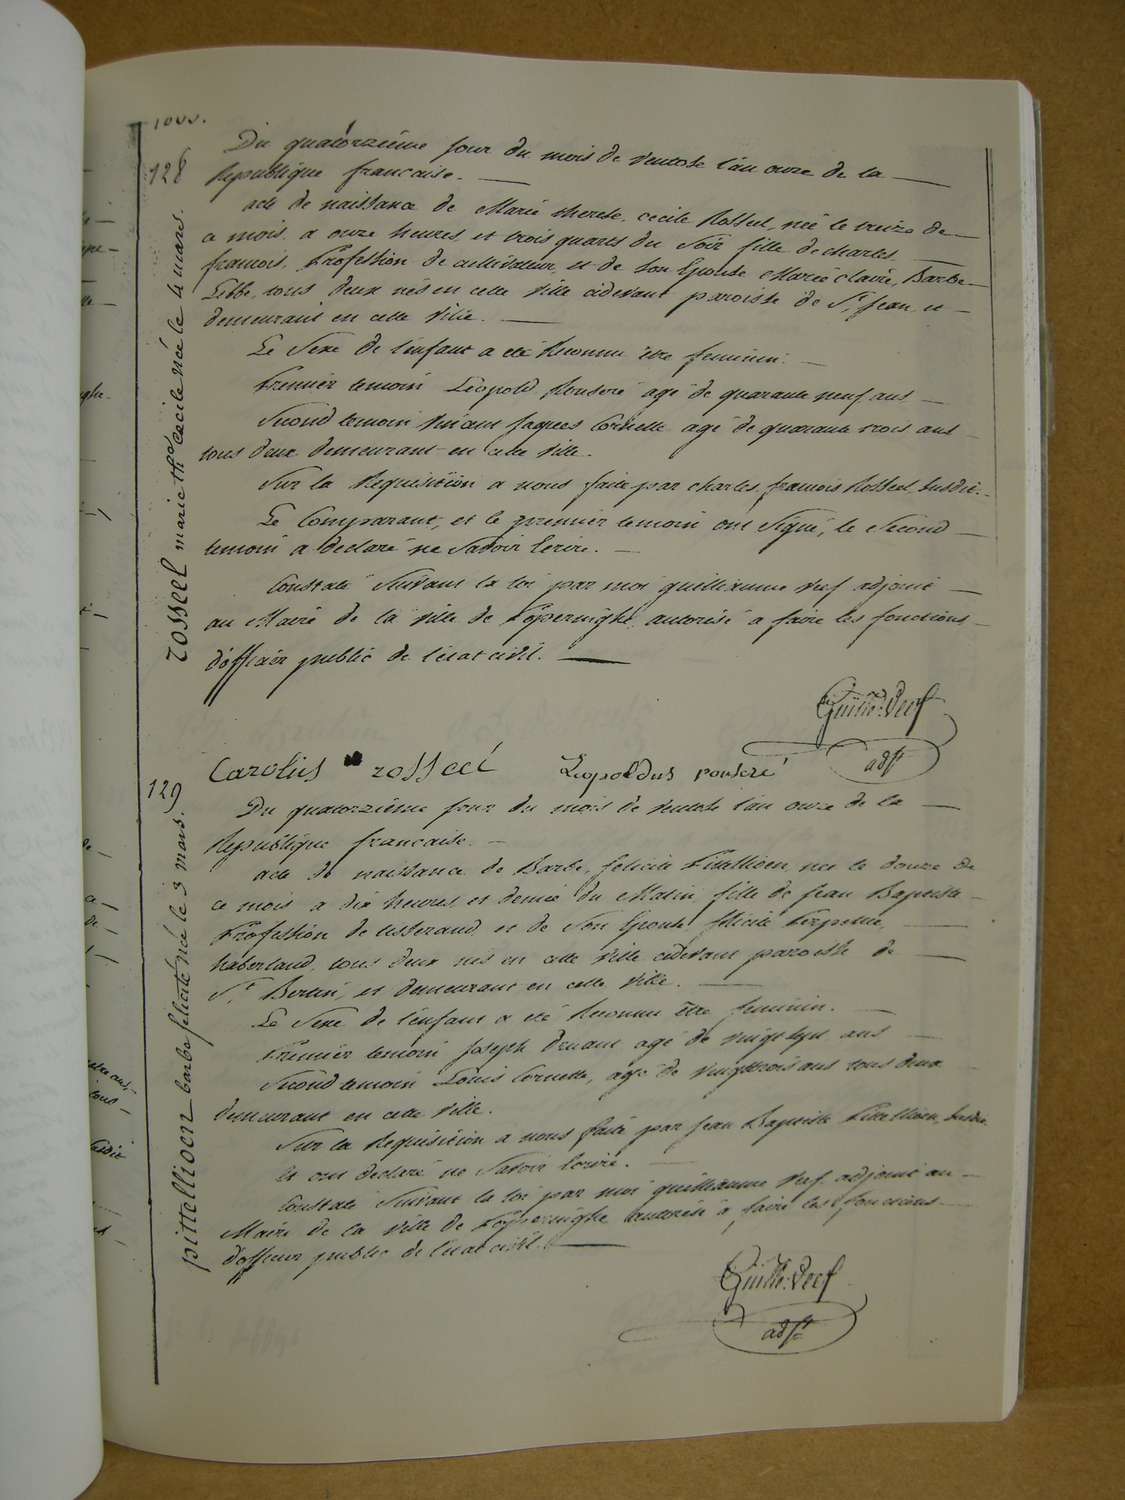 128
Du quatorzième jour du mois de ventose l'an onze de la
Republique francaise.
acte de naissance de Marie therese cecile Rosseel, née le treize de
ce mois a onze heures et trois quarts du soir fille de charles
francois, Profession de cultivateur, et de son Epouse Marie claire, Barbe
tous deux nés en cette ville cidevant paroisse de St. Jean, et
demeurant en cette ville.
Le Sexe de l'enfant a eté Reconnu être feminin.
Premier temoin Léopold Rouseré agé de quarante neuf ans
Second temoin Jacques Cornette agé de quarante trois ans
tous deux demeurant en cette ville.
Sur la Requisition a nous faite par charles francois Rosseel, susdit.
Le Comparant, et le premier temoin ont Signé, le Second
temoin a declaré ne Savoir Ecrire.
Constaté Suivant la loi par moi guilliaume Veef adjoint
au Maire de la ville de Poperinghe autorisé a faire les fonctions
d'officier public de l'état civil.
rosseel marie ths cecile née le 4 mars.
Guille: Veef
adjt
Carolus rosseel Leopoldus rouseré
129
Du quatorzième jour du mois de ventose l'an onze de la
Republique francaise.
acte de naissance de Barbe, felicité Pitellioen, née le douze de
ce mois a dix heures et demie du Matin, fille de Jean Baptiste
Profession de tisserand, et de Son Epouse felicité
haberland, tous deux nés en cette ville cidevant paroisse de
St. Bertin, et demeurant en cette ville.
Le Sexe de l'enfant a eté Reconnu être feminin.
Premier temoin Joseph Druant agé de vingt sept ans
Second temoin Louis Cornette, agé de vingttrois ans tous deux
demeurant en cette ville.
Sur la Requisition a nous faite par Jean Baptiste Pitellioen, susdit
et ont declaré ne Savoir Ecrire.
Constaté Suivant la loi par moi guilliaume Veef adjoint au
Maire de la ville de Poperinghe autorisé a faire les fonctions
d'officier public de l'état civil.
pittellioen barbe felicité née le 3 mars.
Guille: Veef
adjt